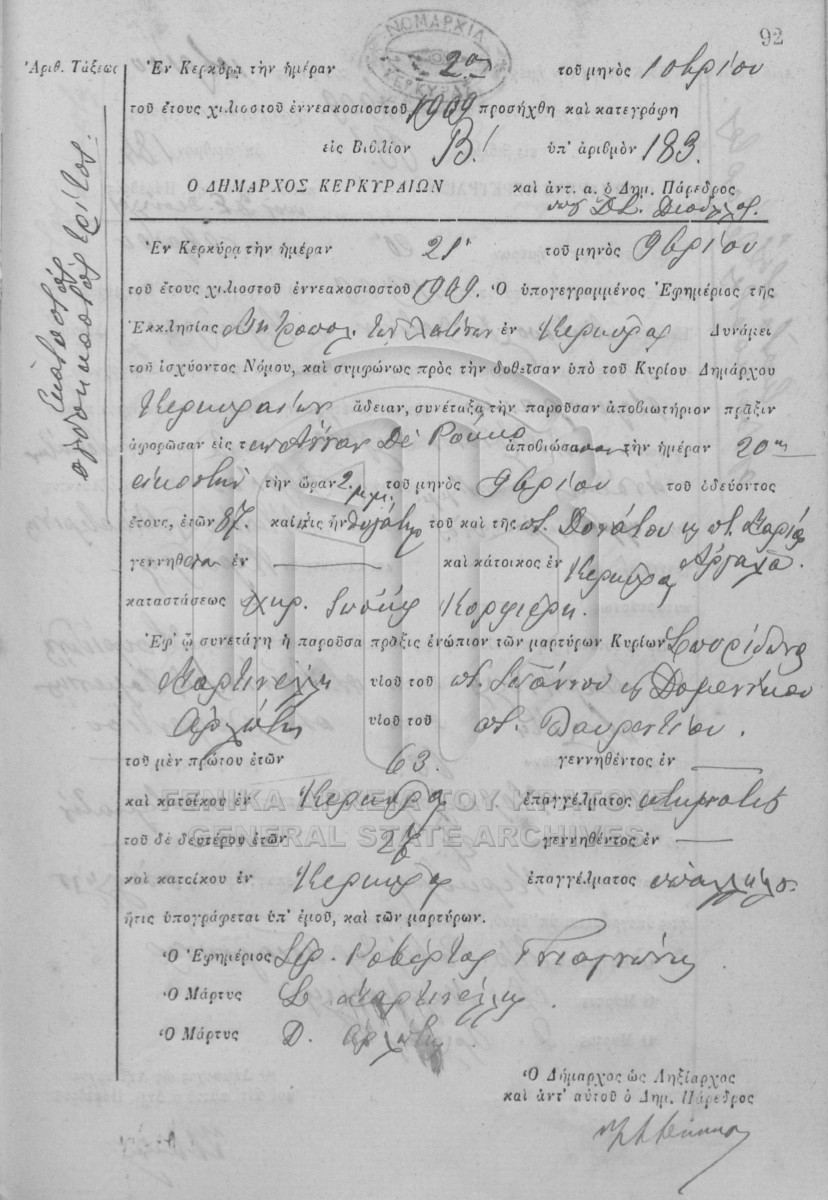 92
ΝΟΜΑΡΧΙΑ
ΚΕΡΚΥΡΑΣ
Ἀριθ. Τάξεως
Ἑκατοστὸς ὀγδοηκοστὸς τρίτος.
Ἐν Κερκύρᾳ τὴν ἡμέραν 2αν τοῦ μηνὸς 10βρίου
τοῦ ἔτους χιλιοστοῦ ἐννεακοσιοστοῦ 1909 προσήχθη καὶ κατεγράφη
εἰς Βιβλίον Β' ὑπ' ἀριθμὸν 183.
Ο ΔΗΜΑΡΧΟΣ ΚΕΡΚΥΡΑΙΩΝ καὶ ἀντ. α. ὁ Δημ. Πάρεδρος
Ἐν Κερκύρᾳ τὴν ἡμέραν 21 τοῦ μηνὸς 9βρίου
τοῦ ἔτους χιλιοστοῦ ἐννεακοσιοστοῦ 1909. Ὁ ὑπογεγραμμένος Ἐφημέριος τῆς
Ἐκκλησίας Μητροπολ. τῶν Λατίνων ἐν Κερκύρᾳ Δυνάμει
τοῦ ἰσχύοντος Νόμου, καὶ συμφώνως πρὸς τὴν δοθεῖσαν ὑπὸ τοῦ Κυρίου Δημάρχου
Κερκυραίων ἄδειαν, συνέταξα τὴν παροῦσαν ἀποβιωτήριον πρᾶξιν
ἀφορῶσαν εἰς τὴν Ἄνναν Δὲ Ῥόκκο ἀποβιώσασαν τὴν ἡμέραν 20ην
εἰκοστὴν τὴν ὥραν 2 μ.μ. τοῦ μηνὸς 9βρίου τοῦ ὁδεύοντος
ἔτους, ἐτῶν 87. καὶ ἥτις ἦν θυγάτηρ τοῦ καὶ τῆς ποτ. Δονάτου κ ποτ. Μαρίας
γεννηθεῖσα ἐν — καὶ κάτοικος ἐν Κερκύρᾳ
καταστάσεως χηρ. Ἰωσὴφ
Ἐφ' ᾧ συνετάγη ἡ παροῦσα πρᾶξις ἐνώπιον τῶν μαρτύρων Κυρίων Σπυρίδωνα
Μαρτινέλλη υἱοῦ τοῦ ποτ. κ Δομενίκου
υἱοῦ τοῦ ποτ. Λαυρεντίου.
τοῦ μὲν πρώτου ἐτῶν 63. γεννηθέντος ἐν —
καὶ κατοίκου ἐν Κερκύρᾳ ἐπαγγέλματος κτηματίς
τοῦ δὲ δευτέρου ἐτῶν γεννηθέντος ἐν —
καὶ κατοίκου ἐν Κερκύρᾳ ἐπαγγέλματος ὑπάλληλος
ἥτις ὑπογράφεται ὑπ' ἐμοῦ, καὶ τῶν μαρτύρων.
Ὁ Ἐφημέριος Ῥοβέρτος
Ὁ Μάρτυς Σ Μαρτινέλλης
Ὁ Μάρτυς Δ.
Ὁ Δήμαρχος ὡς Ληξίαρχος
καὶ ἀντ' αὐτοῦ ὁ Δημ. Πάρεδρος
ΓΕΝΙΚΑ ΑΡΧΕΙΑ ΤΟΥ ΚΡΑΤΟΥΣ
GENERAL STATE ARCHIVES